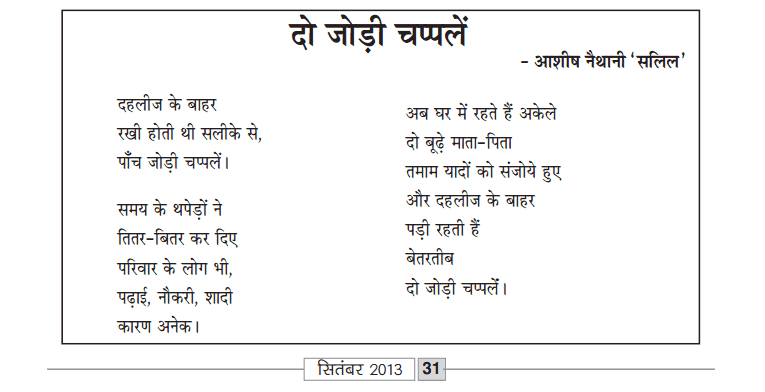 दो जोड़ी चप्पलें
- आशीष नैथानी ‘सलिल’
दहलीज के बाहर
रखी होती थी सलीके से,
पाँच जोड़ी चप्पलें।
समय के थपेड़ों ने
तितर-बितर कर दिए
परिवार के लोग भी,
पढ़ाई, नौकरी, शादी
कारण अनेक।
अब घर में रहते हैं अकेले
दो बूढ़े माता-पिता
तमाम यादों को संजोये हुए
और दहलीज के बाहर
पड़ी रहती हैं
बेतरतीब
दो जोड़ी चप्पलें।
सितंबर 2013 31